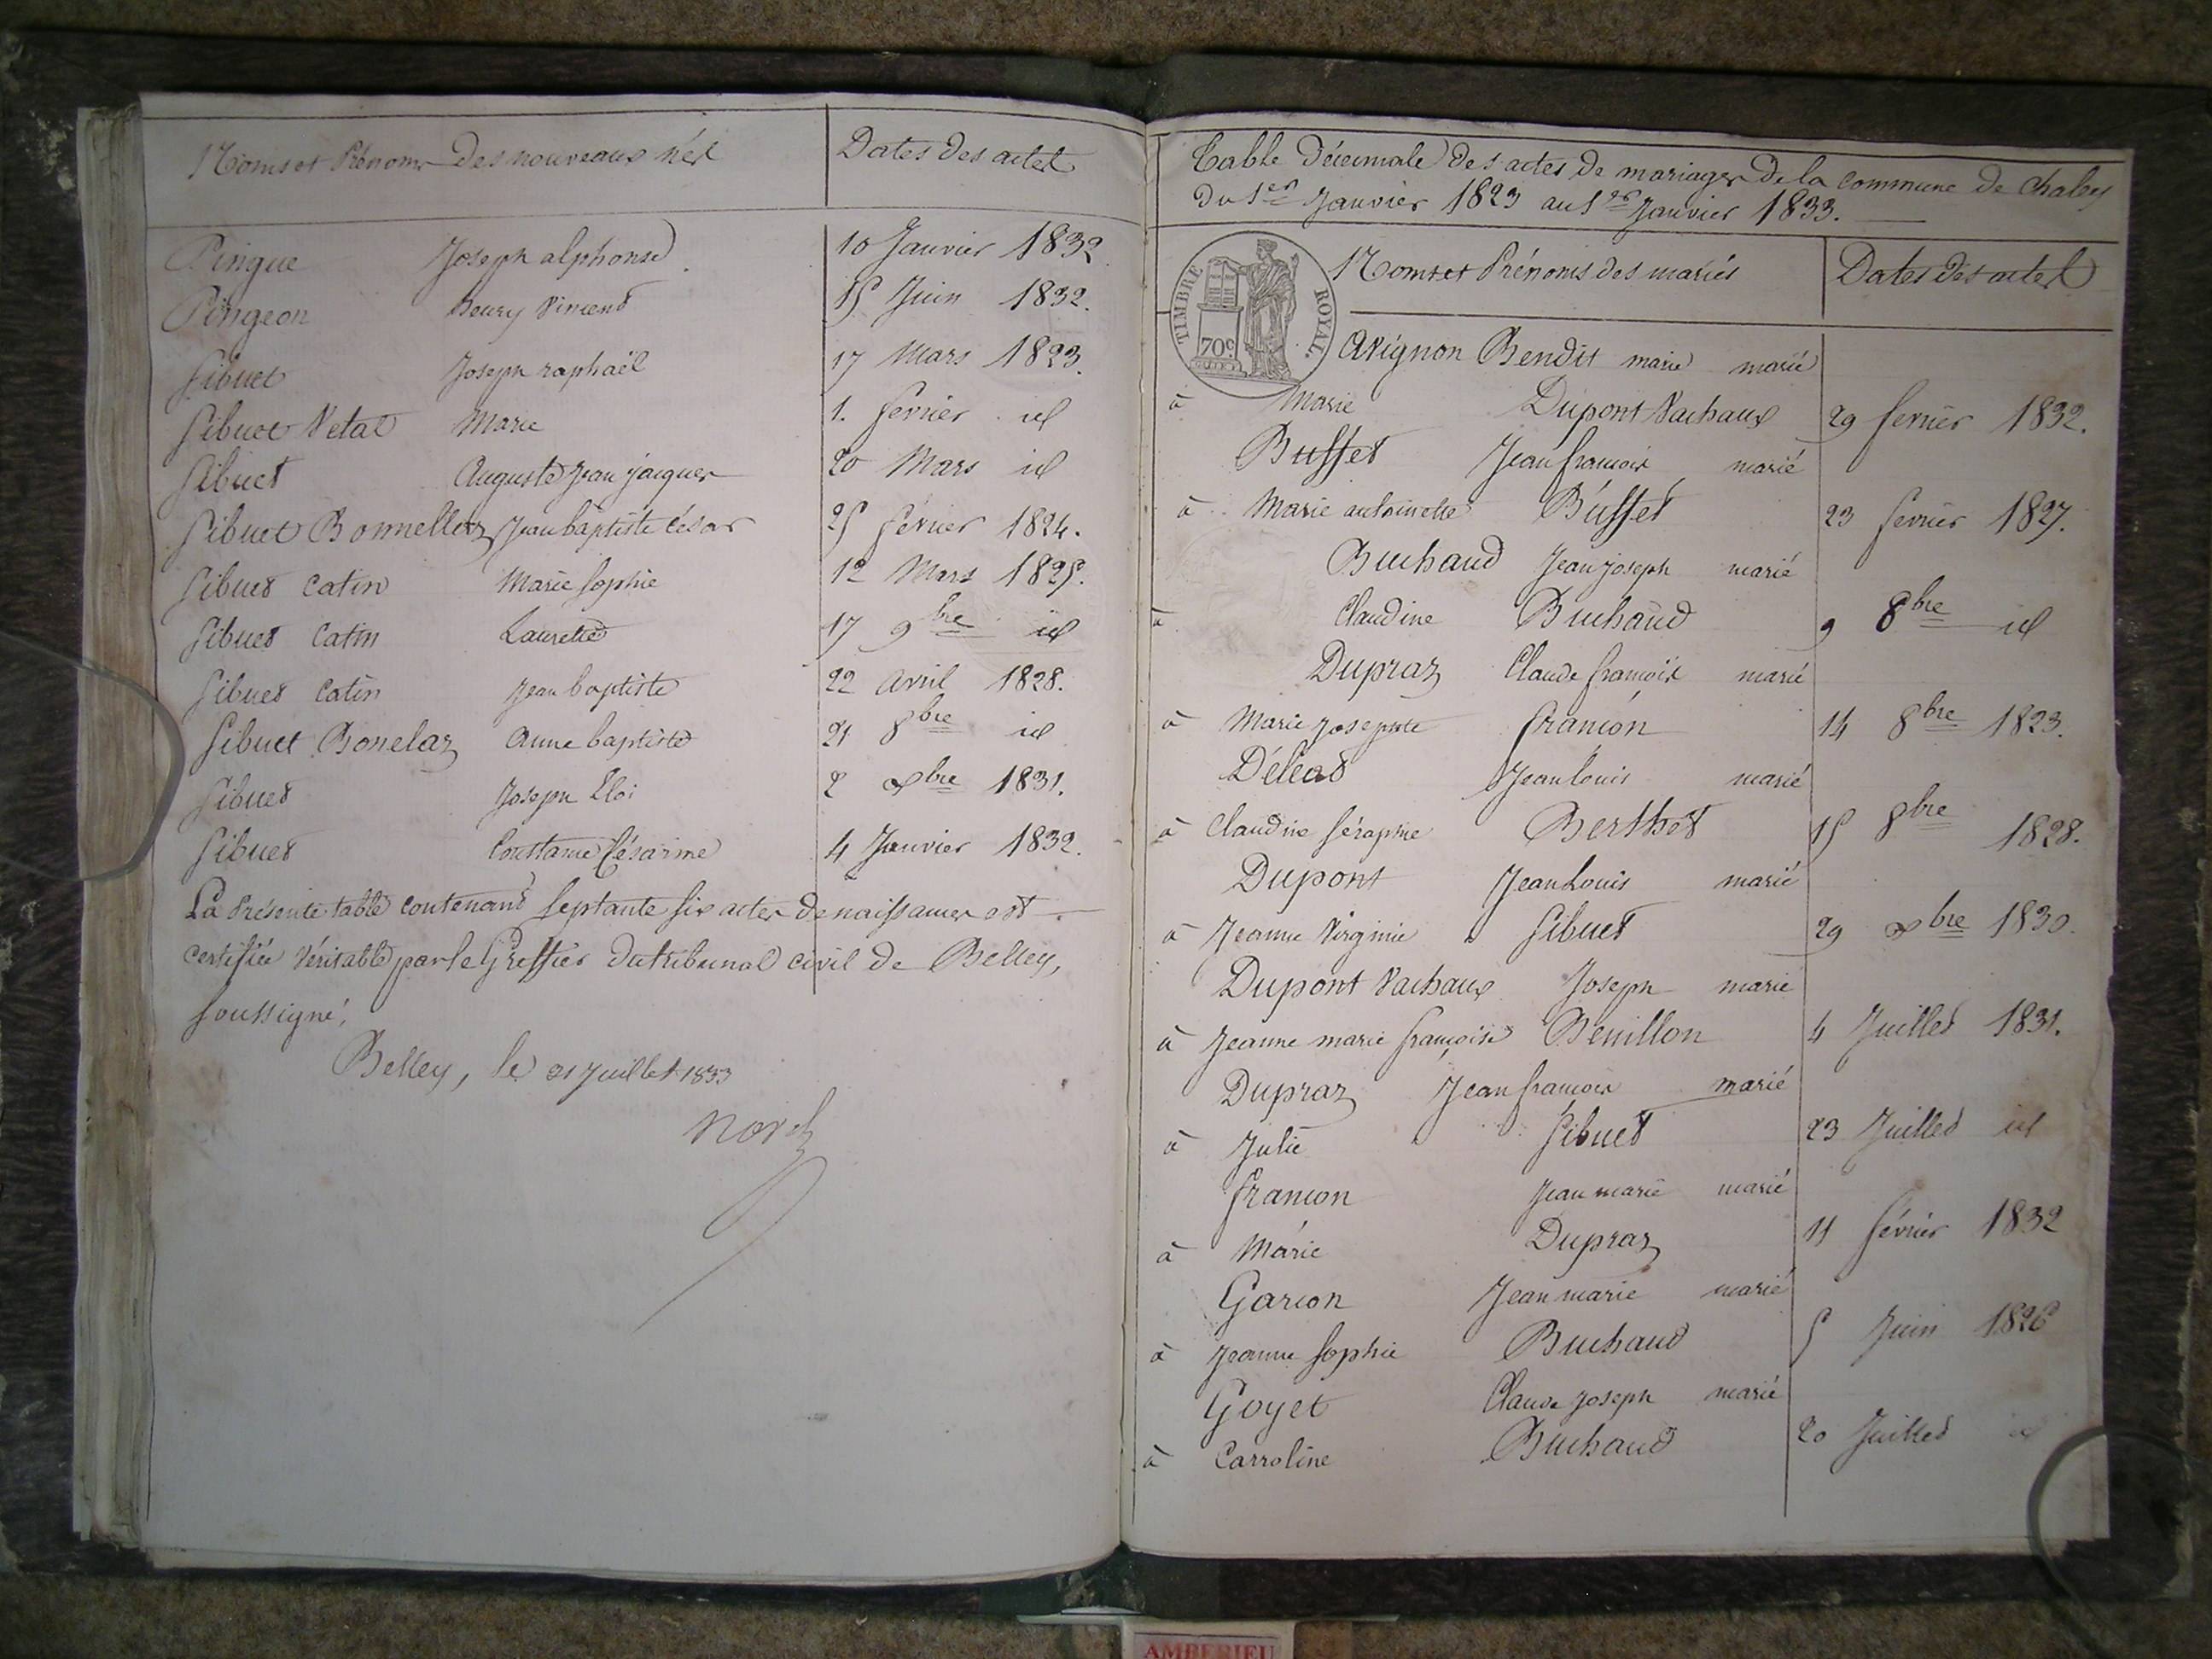 Noms et Prénoms des nouveaux nés Dates des actes
Pingue Joseph alphonse 10 Janvier 1832
Pingeon henry Vincent 15 Juin 1832.
Sibuet Joseph raphaël 17 Mars 1823.
Sibuet Vetat Marie 1. fevrier id
Sibuet Auguste Jean jacques 20 Mars id
Sibuet Bonnellaz Jean baptiste César 25 février 1824.
Sibuet Catin Marie Sophie 12 Mars 1825.
Sibuet Catin Laurette 17 9bre id
Sibuet Catin Jean baptiste 22 avril 1828.
Sibuet Bonelaz anne baptiste 21 8bre id
Sibuet Joseph Eloi 2 xbre 1831.
Sibuet Constance Césarine 4 Janvier 1832.
La présente table contenant septante six actes de naissances est
certifiée véritable par le Greffier du tribunal civil de Belley,
soussigné,
Belley, le 21 juillet 1833
Table Décennale des actes de mariages de la commune de Chaley
du 1er Janvier 1823 au 1er Janvier 1833.
TIMBRE ROYAL.
70c.
Noms et Prénoms des mariés Dates des actes
Avignon Bendit marie marié
à Marie Dupont Vachaux 29 fevrier 1832.
Buffet Jean françois marié
à Marie antoinette Buffet 23 fevrier 1827.
Buchaud Jean joseph marié
à Claudine Buchaud 9 8bre id
Dupraz Claude françois marié
à Marie josephte françon 14 8bre 1823.
Déléat Jean louis marié
à Claudine Séraphie Berthet 15 8bre 1828.
Dupont Jean Louis marié
à Jeanne Virginie Sibuet 29 xbre 1830.
Dupont Vachaux Joseph marié
à Jeanne marie françoise Benillon 4 Juillet 1831.
Dupraz Jean françois marié
à Julie Sibuet 23 Juillet id
françon Jean marie marié
à Marie Dupraz 11 février 1832
Garçon Jean marie marié
à Jeanne Sophie Buchaud 5 Juin 1826
Goyet Claude joseph marié
à Carroline Buchaud 20 Juillet id
AMBERIEU